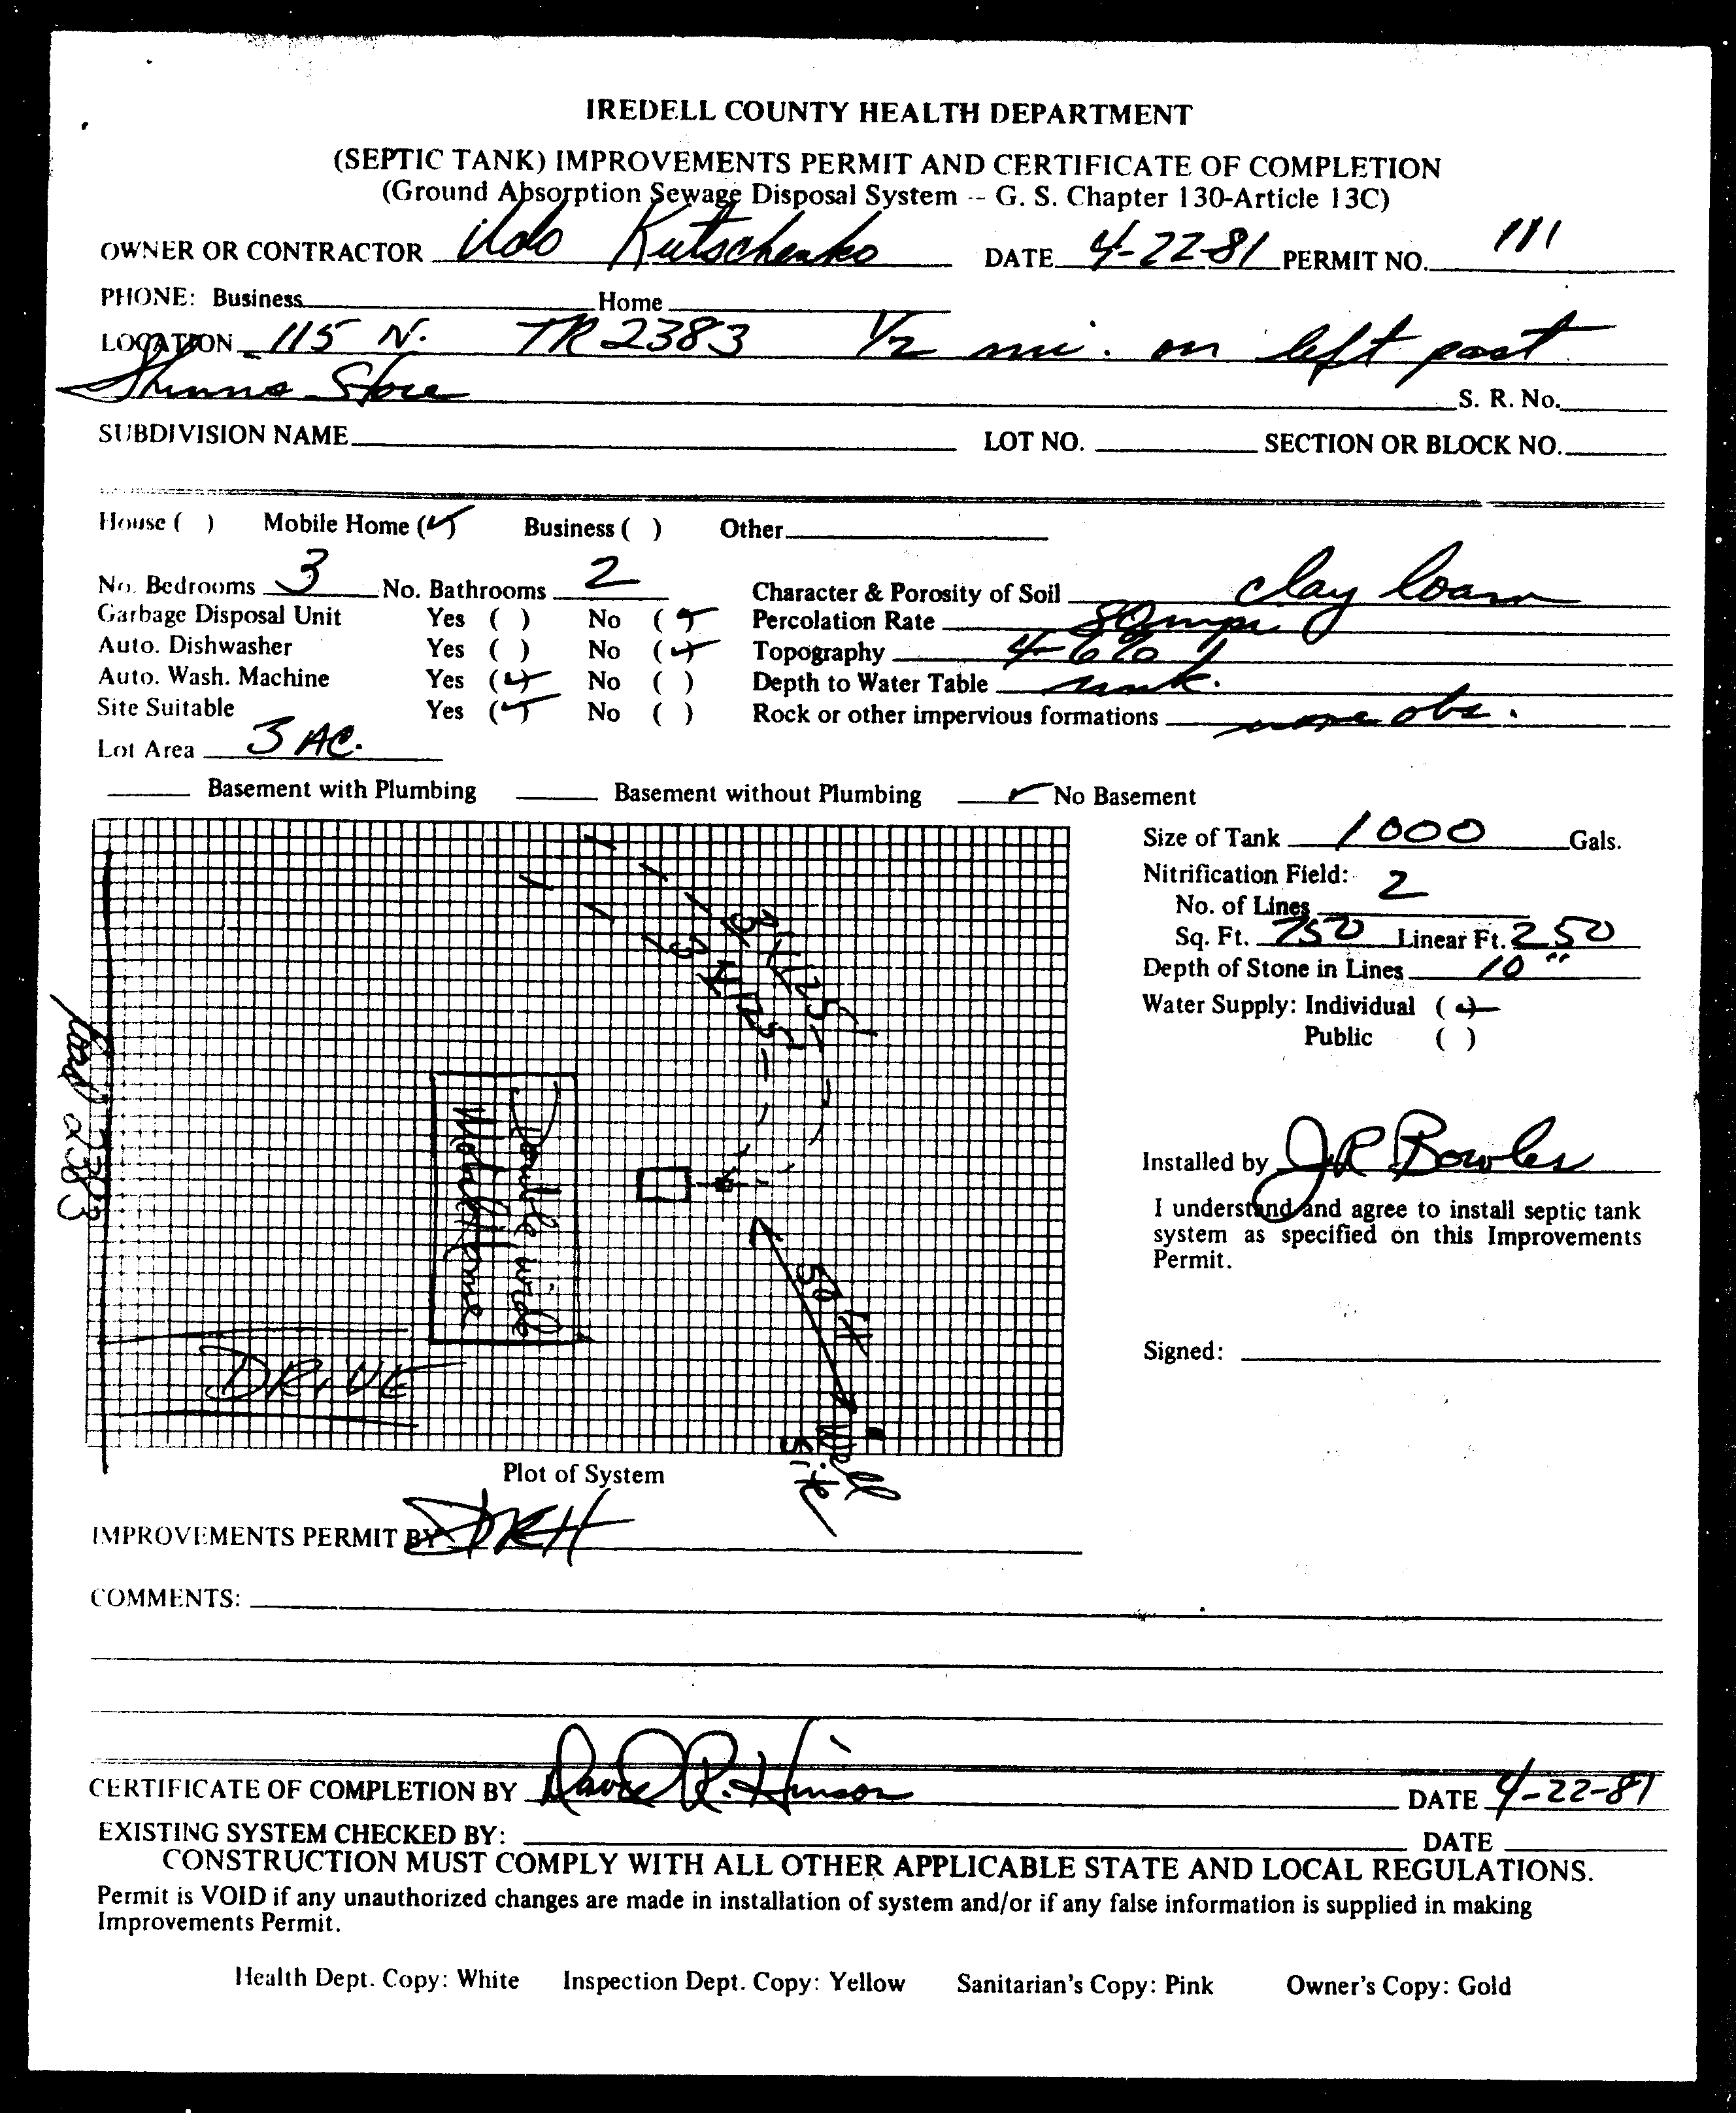 IREDELL COUNTY HEALTH DEPARTMENT
(SEPTIC TANK) IMPROVEMENTS PERMIT AND CERTIFICATE OF COMPLETION
(Ground Absorption Sewage Disposal System -- G. S. Chapter 130-Article 13C)
OWNER OR CONTRACTOR Udo Kutschenko DATE 4-22-81 PERMIT NO. 111
PHONE: Business Home
LOCATION 115 N. TR 2383 1/2 mi. on left past
Shinns Store S. R. No.
SUBDIVISION NAME LOT NO. SECTION OR BLOCK NO.
House ( ) Mobile Home (✓) Business ( ) Other
No. Bedrooms 3 No. Bathrooms 2 Character & Porosity of Soil clay loam
Garbage Disposal Unit Yes ( ) No (✓) Percolation Rate 80 mpi
Auto. Dishwasher Yes ( ) No (✓) Topography 4-6%
Auto. Wash. Machine Yes (✓) No ( ) Depth to Water Table unk.
Site Suitable Yes (✓) No ( ) Rock or other impervious formations none obs.
Lot Area 3 AC.
Basement with Plumbing Basement without Plumbing ✓ No Basement
Size of Tank 1000 Gals.
Nitrification Field:
No. of Lines 2
Sq. Ft. 750 Linear Ft. 250
Depth of Stone in Lines 10"
Water Supply: Individual (✓)
Public ( )
3'X125'
3'X125'
Road 2383
Double wide
Mobile Home
50 ft
DRIVE
Well
Site
Installed by J.R. Bowles
I understand and agree to install septic tank
system as specified on this Improvements
Permit.
Signed:
Plot of System
IMPROVEMENTS PERMIT BY DRH
COMMENTS:
CERTIFICATE OF COMPLETION BY David R. Hinson DATE 4-22-81
EXISTING SYSTEM CHECKED BY: DATE
CONSTRUCTION MUST COMPLY WITH ALL OTHER APPLICABLE STATE AND LOCAL REGULATIONS.
Permit is VOID if any unauthorized changes are made in installation of system and/or if any false information is supplied in making
Improvements Permit.
Health Dept. Copy: White Inspection Dept. Copy: Yellow Sanitarian's Copy: Pink Owner's Copy: Gold